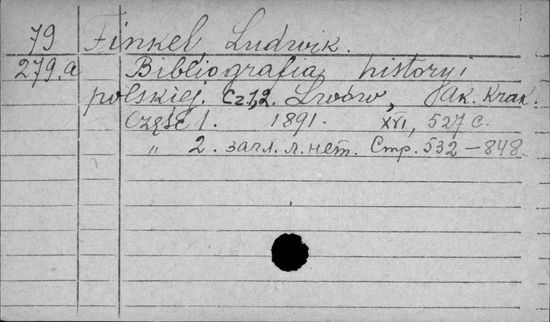 79 Finkel, Ludwik.
279.a Bibliografia history i
polskiej. Cz.1,2. Lwów, Jak. Krak.
Część 1. 1891. XVI, 527 с.
„ 2. загл. л. нет. Стр. 532–848